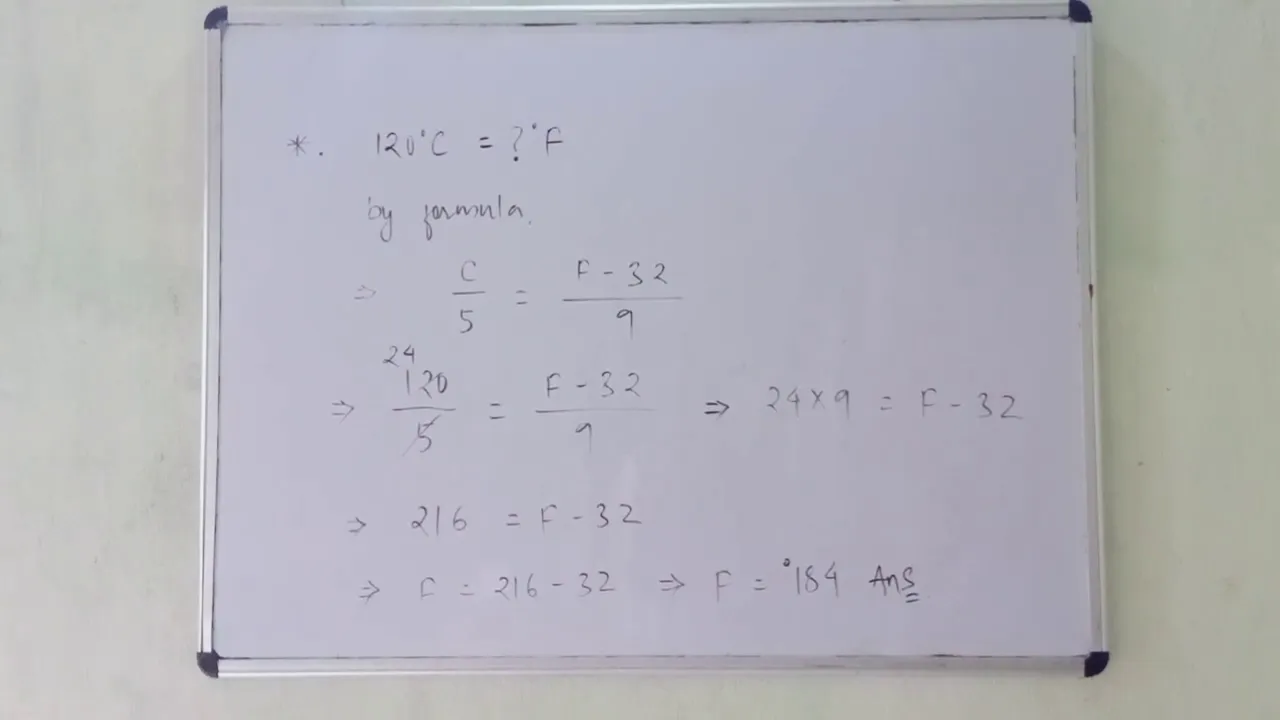 *. 120°C = ?°F
by formula.
⇒ C/5 = F - 32/9
⇒ 24 120/5 = F - 32/9 ⇒ 24 × 9 = F - 32
⇒ 216 = F - 32
⇒ F = 216 - 32 ⇒ F = °184 Ans